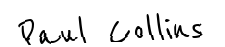 Paul Collins